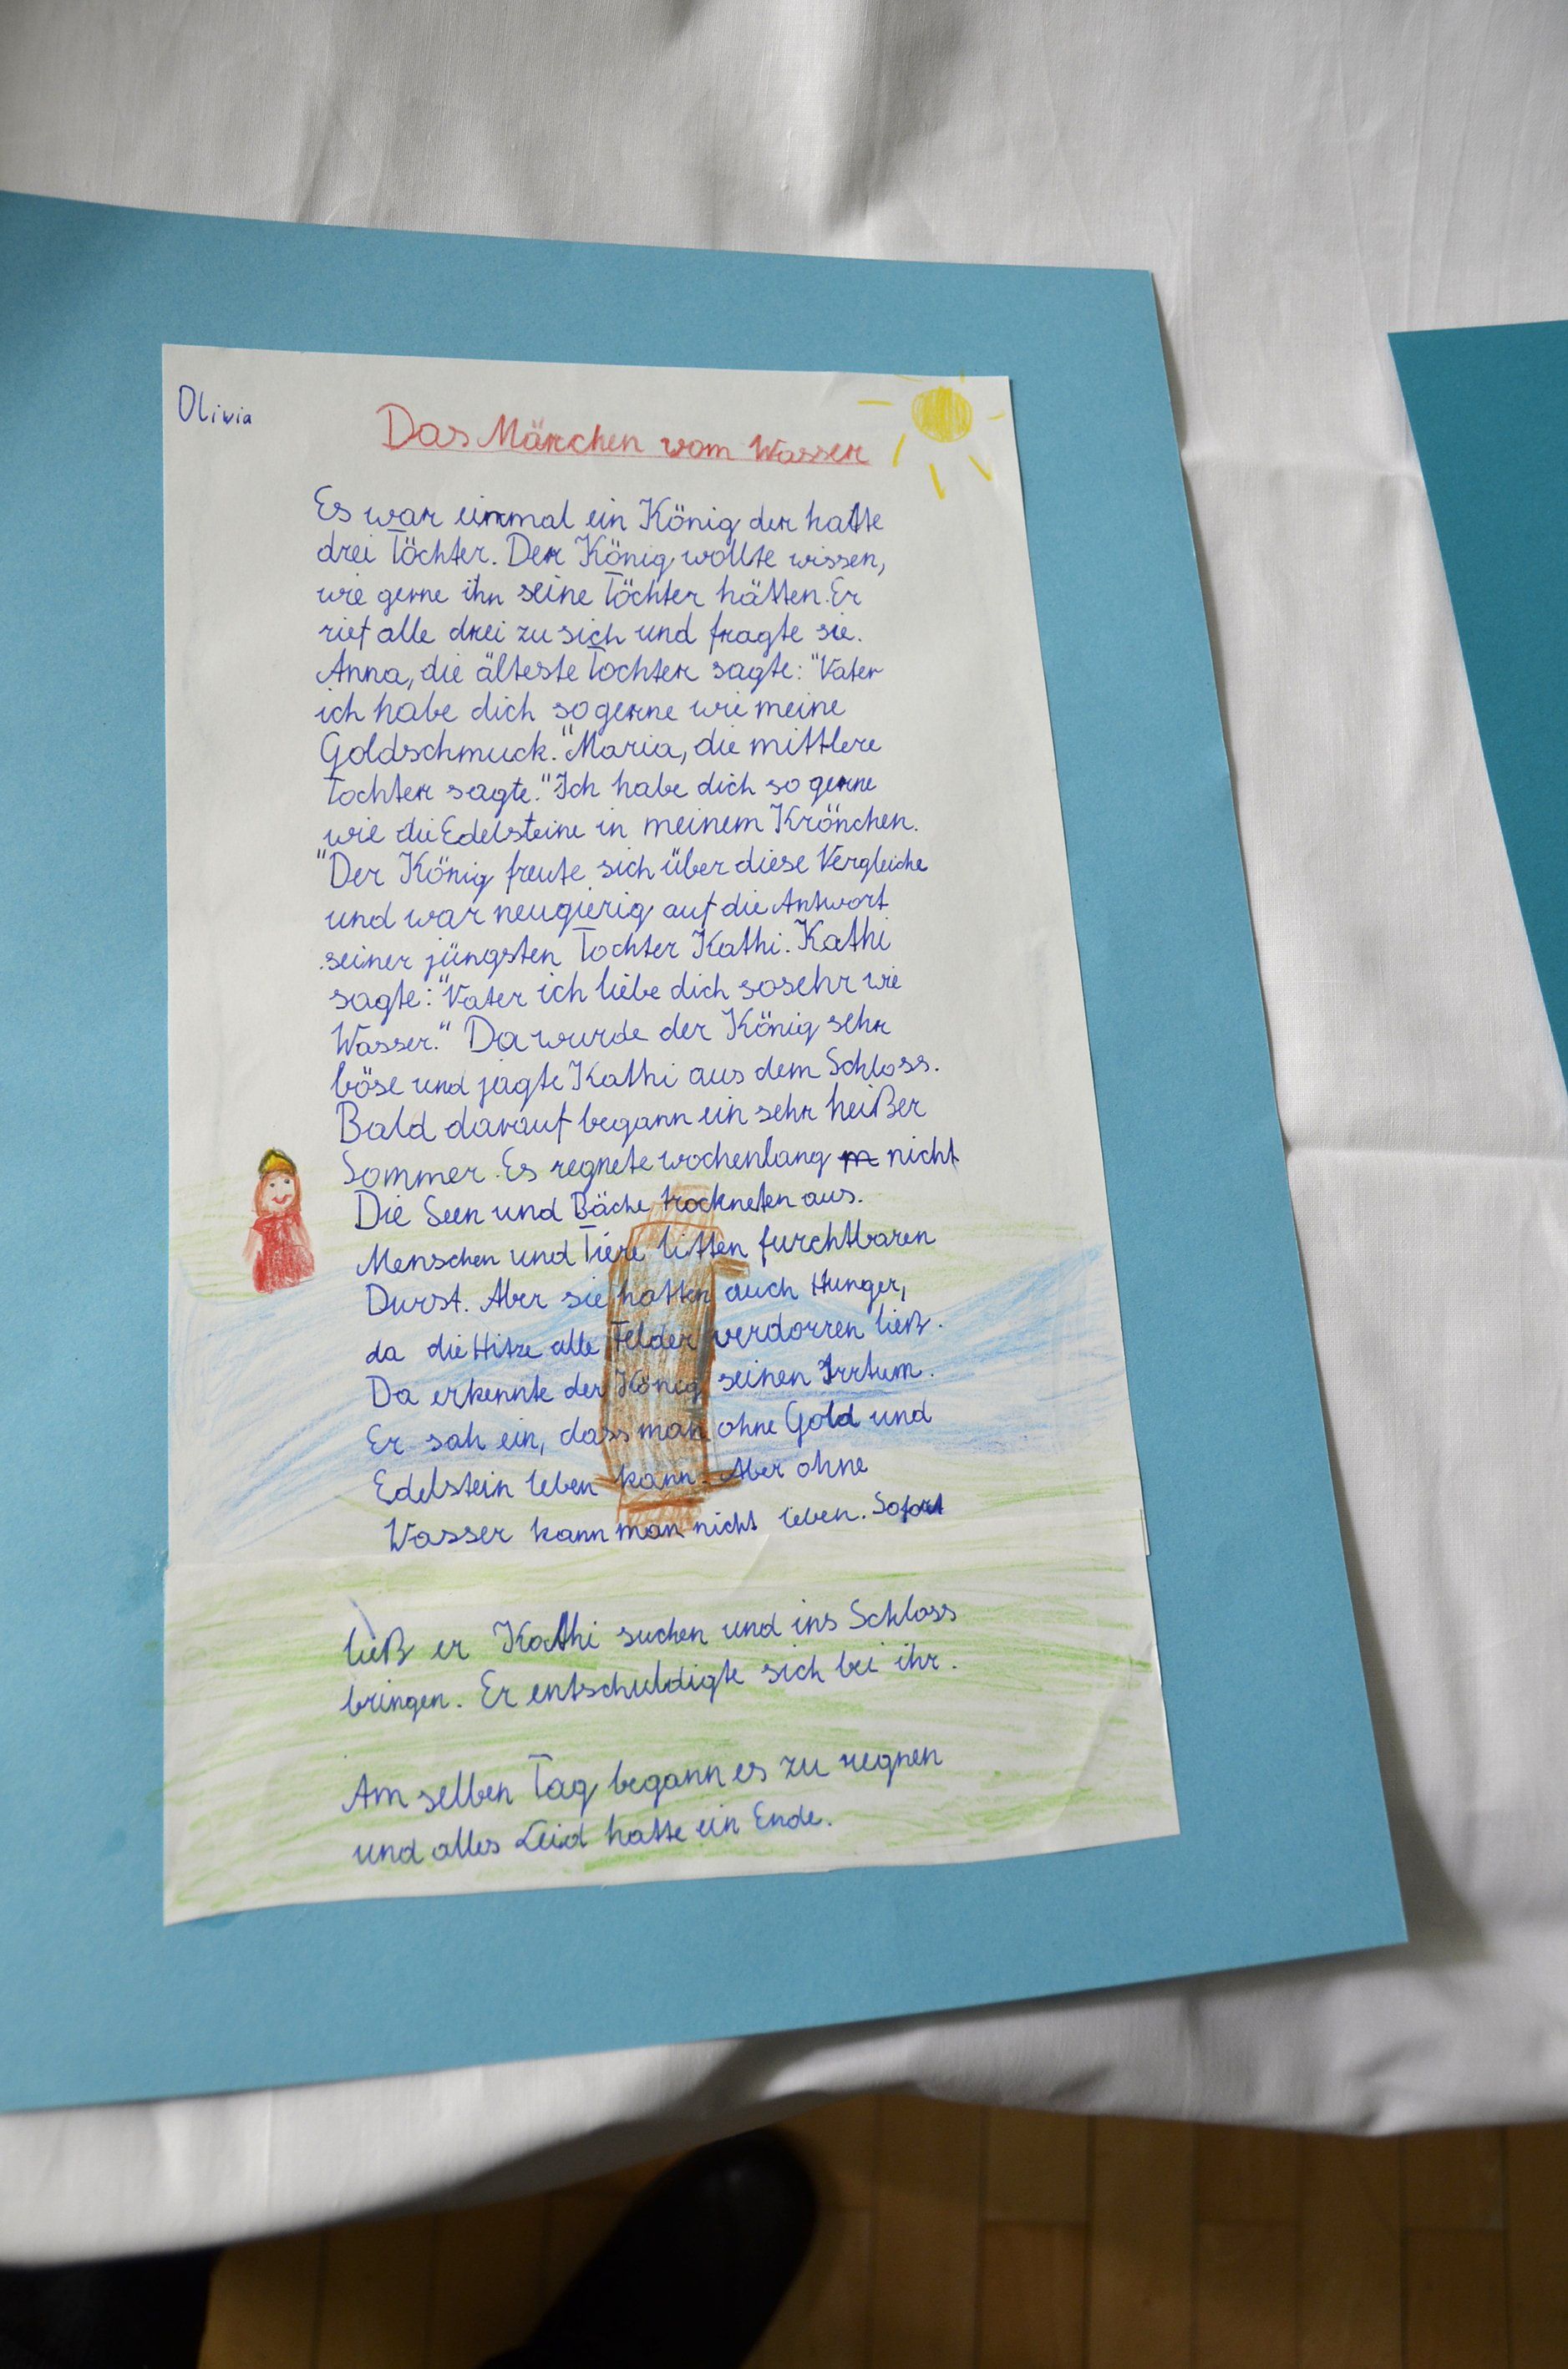 Olivia
Das Märchen vom Wasser
Es war einmal ein König der hatte
drei Töchter. Der König wollte wissen,
wie gerne ihn seine Töchter hätten. Er
rief alle drei zu sich und fragte sie.
Anna, die älteste Tochter sagte: "Vater
ich habe dich so gerne wie meine
Goldschmuck." Maria, die mittlere
Tochter sagte: "Ich habe dich so gerne
wie die Edelsteine in meinem Krönchen.
"Der König freute sich über diese Vergleiche
und war neugierig auf die Antwort
seiner jüngsten Tochter Kathi. Kathi
sagte: "Vater ich liebe dich sosehr wie
Wasser." Da wurde der König sehr
böse und jagte Kathi aus dem Schloss.
Bald darauf begann ein sehr heißer
Sommer. Es regnete wochenlang nicht
Die Seen und Bäche trockneten aus.
Menschen und Tiere litten furchtbaren
Durst. Aber sie hatten auch Hunger,
da die Hitze alle Felder verdorren ließ.
Da erkennte der König seinen Irrtum.
Er sah ein, dass man ohne Gold und
Edelstein leben kann. Aber ohne
Wasser kann man nicht leben. Sofort
ließ er Kathi suchen und ins Schloss
bringen. Er entschuldigte sich bei ihr.
Am selben Tag begann es zu regnen
und alles Leid hatte ein Ende.